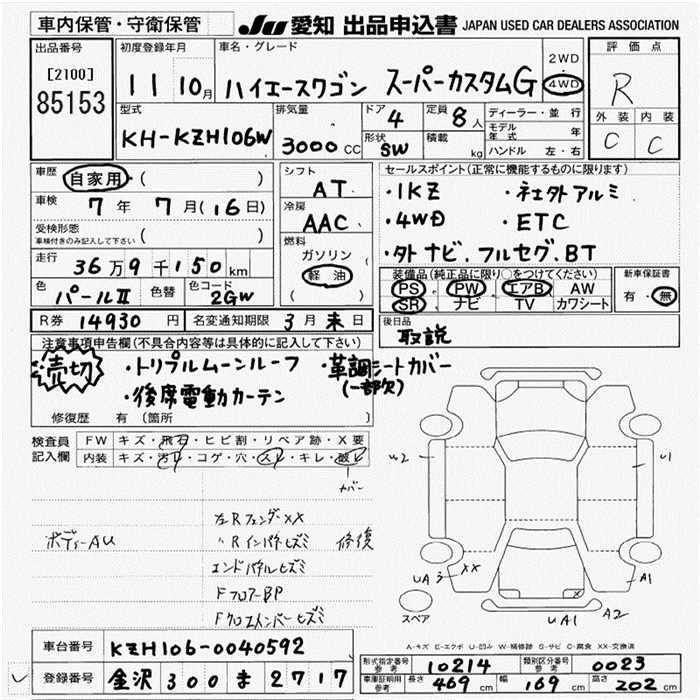 車内保管・守衛保管 JU 愛知 出品申込書 JAPAN USED CAR DEALERS ASSOCIATION
出品番号 初度登録年月 車名・グレード 2WD・4WD 評価点
[2100]
85153 11 10月 ハイエースワゴン スーパーカスタムG R
外装 内装
C C
型式 排気量 ドア 定員 ディーラー・並行
KH-KZH106W 3000CC 4 8人 モデル年式 年
形状 積載 ハンドル 左・右
SW kg
車歴 自家用・( ) シフト AT セールスポイント(正常に機能するものに限ります)
車検 7年7月(16日) 冷房 AAC ・1KZ ・社外アルミ
受検形態 ( ) ・4WD ・ETC
車検付きのみ記入して下さい
燃料 ・外ナビ.フルセグ.BT
走行 36万9千150km ガソリン 軽油 ( )
装備品(純正品に限り○をつけてください) 新車保証書
色 パールⅡ 色替 色コード 2GW PS・PW・エアB・AW 有・無
SR・ナビ・TV・カワシート
R券 14930円 名変通知期限 3月末日 後日品
取説
注意事項申告欄(不具合内容等は具体的に記入して下さい)
売切 ・トリプルムーンルーフ ・革調シートカバー
(一部欠)
・後席電動カーテン
修復歴 有(箇所 )
検査員記入欄 FW キズ・飛石・ヒビ割・リペア跡・X要
内装 キズ・汚レ・コゲ・穴・スレ・キレ・破レ
カバー
W2 U1
左Rフェンダー××
ボディーAU 〃Rインパネヒズミ 修復
エンドパネルヒズミ
FフロアーBP
Fクロスメンバーヒズミ
UA3 ×× × A1
スペア UA1 A2
A-キズ E-エクボ U-凹み W-補修跡 S-サビ C-腐食 XX-交換済
車台番号 KZH106-0040592
登録番号 金沢 300 ま 2717
形式指定番号 参考 10214 類別区分番号 参考 0023
車庫証明用 参考 長さ 469cm 幅 169cm 高さ 202cm